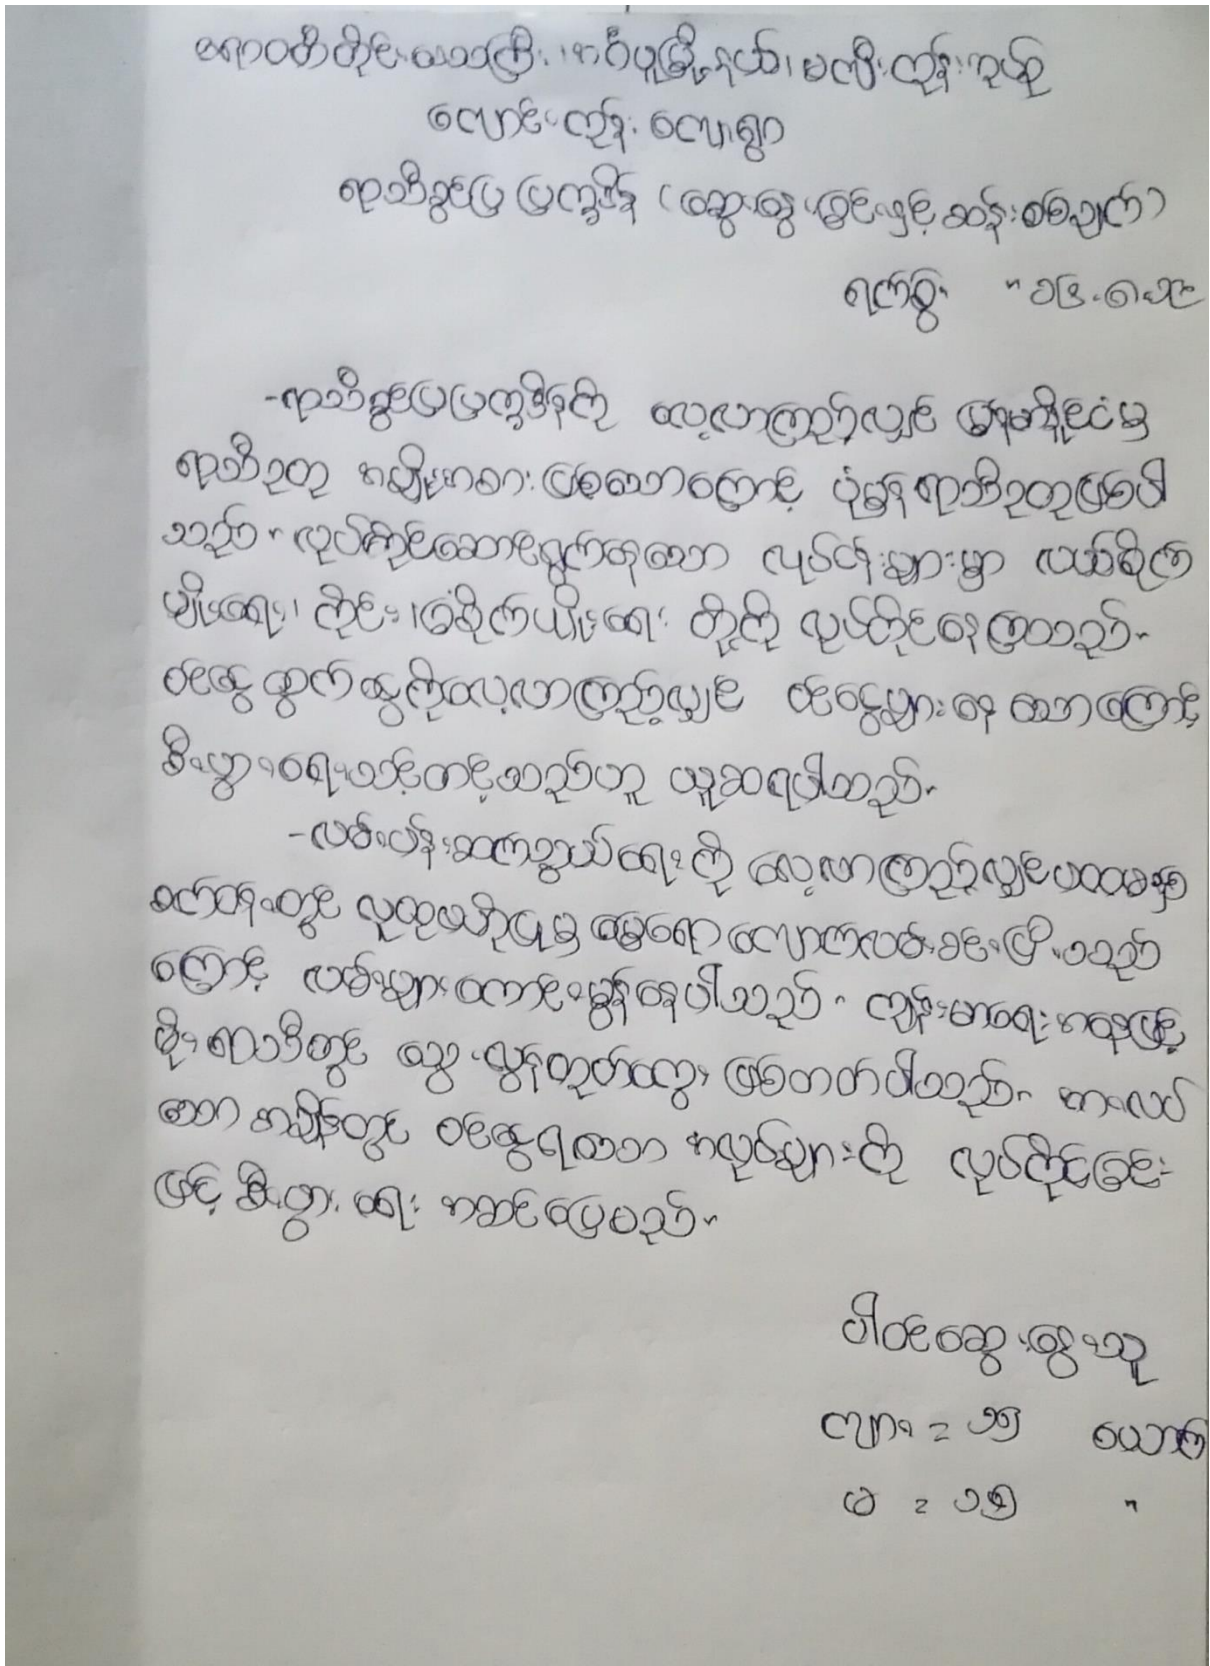 ဧရာဝတီတိုင်းဒေသကြီး၊ အင်္ဂပူမြို့နယ်၊ မကျီးကုန်းအုပ်စု
လောင်းကုန်း ကျေးရွာ
ရာသီခွင်ပြ ပြက္ခဒိန် (ဆွေးနွေးခြင်းနှင့် ဆန်းစစ်ချက်)
ရက်စွဲ
-ရာသီခွင်ပြပြက္ခဒိန်ကို လေ့လာကြည့်လျှင် မြန်မာနိုင်ငံမှ
ရာသီဥတု အမျိုးအစား ဖြစ်သောကြောင့် ပုံမှန်ရာသီဥတုဖြစ်ပါ
သည်။ လုပ်ကိုင်ဆောင်ရွက်နေသော လုပ်ငန်းများမှာ လယ်စိုက်
မျိုးရေး၊ ကိုင်း၊ ခြံစိုက်ပျိုးရေး တို့ကို လုပ်ကိုင်နေကြသည်။
ဝင်ငွေထွက်ငွေကိုလေ့လာကြည့်လျှင် ဝင်ငွေများနေသောကြောင့်
စီးပွားရေးသင့်တင့်သည်ဟု ယူဆရပါသည်။
-လမ်းပန်းဆက်သွယ်ရေးကို လေ့လာကြည့်လျှင် ပထမနှစ်
စက်ဝန်းတွင် လူထုဗဟိုပြုမှ မြေရော ကျောက်လမ်းခင်းပြီးသည့်
ကြောင့် လမ်းများကောင်းမွန်နေပါသည်။ ကျန်းမာရေးအနေဖြင့်
မိုးရာသီတွင် သွေးလွန်တုပ်ကွေး ဖြစ်တတ်ပါသည်။ အားလပ်
သော အချိန်တွင် ဝင်ငွေရသော အလုပ်များကို လုပ်ကိုင်ခြင်း
ဖြင့် စီးပွားရေး အဆင်ပြေမည်။
ပါဝင်ဆွေးနွေးသူ
ကျား = ၁၅ ယောက်
မ = ၁၅ "